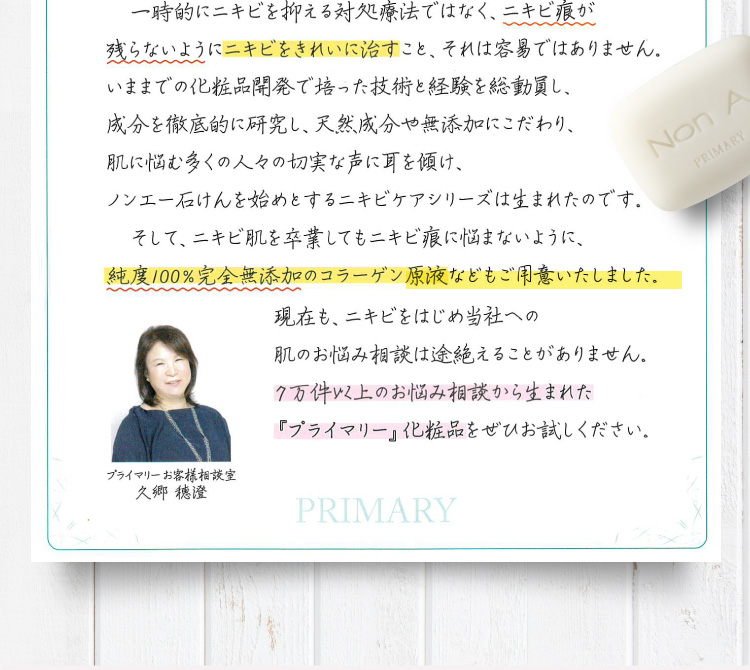 一時的にニキビを抑える対処療法ではなく、ニキビ痕が
残らないようにニキビをきれいに治すこと、それは容易ではありません。
いままでの化粧品開発で培った技術と経験を総動員し、
成分を徹底的に研究し、天然成分や無添加にこだわり、
肌に悩む多くの人々の切実な声に耳を傾け、
ノンエー石けんを始めとするニキビケアシリーズは生まれたのです。
そして、ニキビ肌を卒業してもニキビ痕に悩まないように、
純度100%完全無添加のコラーゲン原液などもご用意いたしました。
現在も、ニキビをはじめ当社への
肌のお悩み相談は途絶えることがありません。
7万件以上のお悩み相談から生まれた
『プライマリー』化粧品をぜひお試しください。
プライマリーお客様相談室
久郷 穂澄
PRIMARY
Non A
PRIMARY